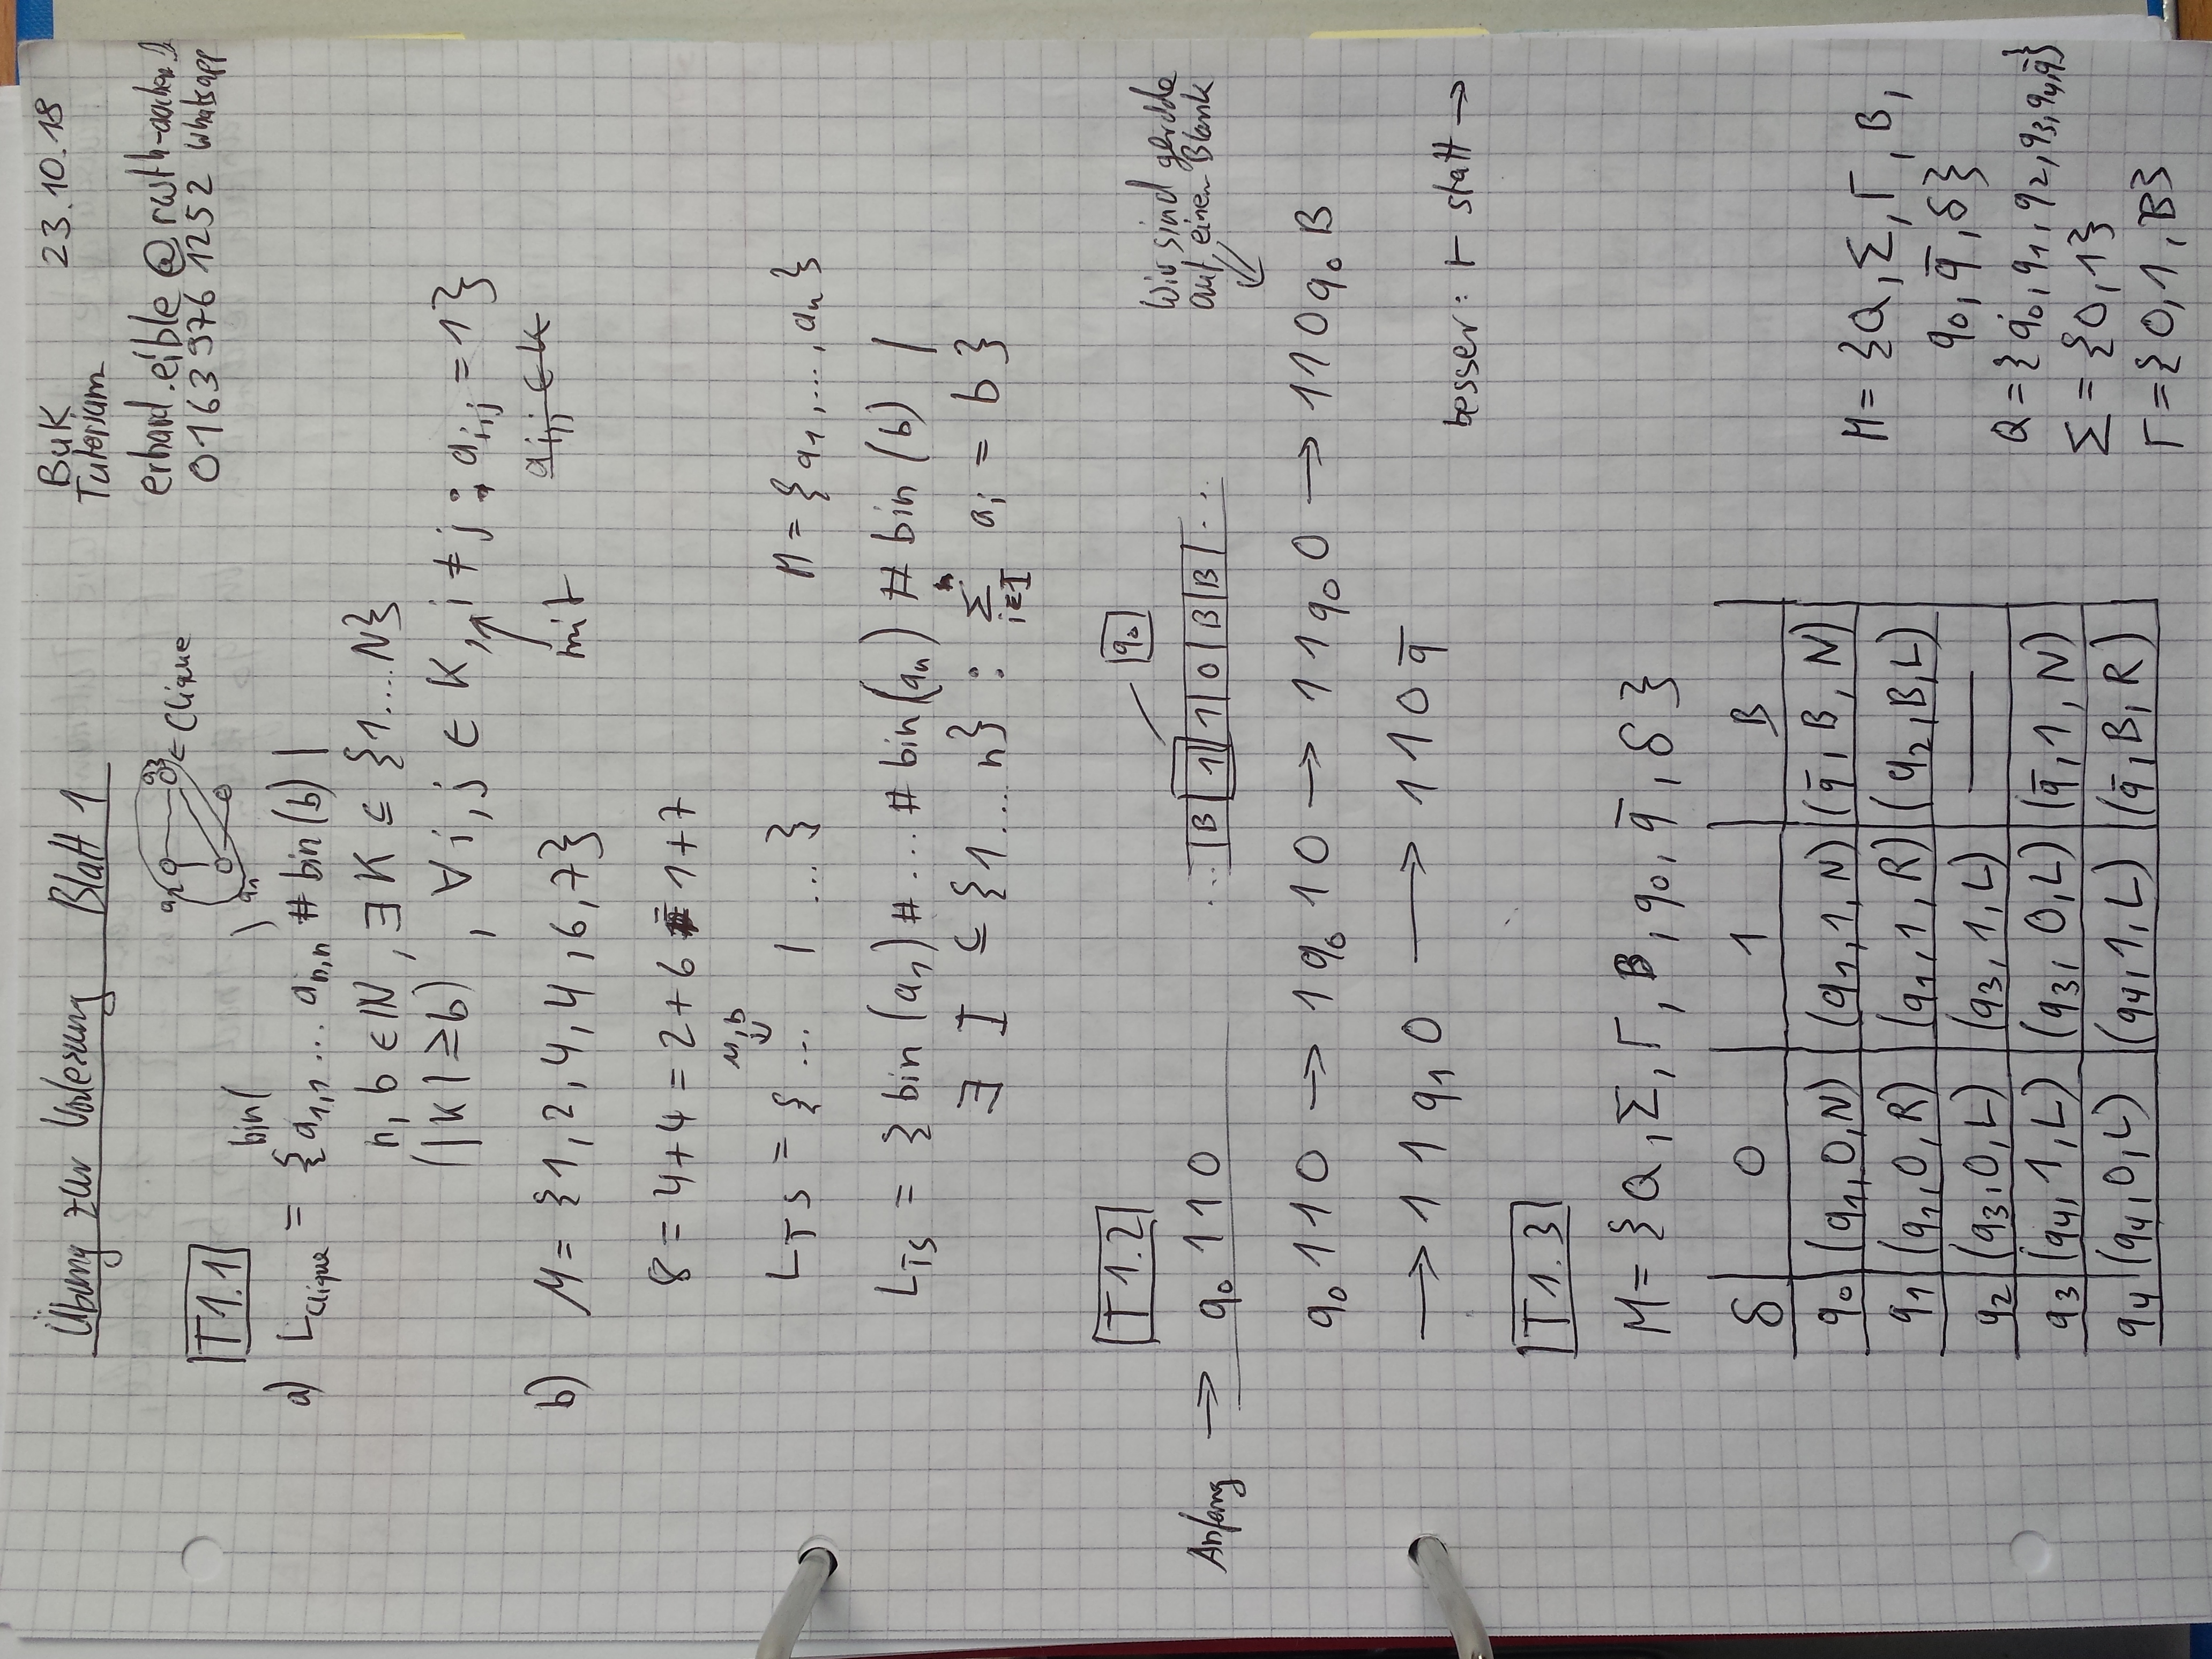 Übung zur Vorlesung Blatt 1
BuK 23.10.18
Tutorium
erhard.eible @ rwth-aachen.de
0163 976 1252 Whatsapp
T1.1
← Clique
bin( )
a) L_Clique = {a_1,1 ... a_n,n # bin(b) |
n, b ∈ ℕ, ∃ K ⊆ {1....N}
(|K| ≥ b), ∀ i,j ∈ K, i ≠ j : a_i,j = 1}
mit
a_i,j ∈ K
b) M = {1, 2, 4, 4, 6, 7}
8 = 4+4 = 2+6 = 1+7
M,b
L_TS = { ... | ... } M = {a_1, ..., a_n}
L_TS = {bin(a_1) # ... # bin(a_n) # bin(b) |
∃ I ⊆ {1...n} : Σ_i∈I a_i = b}
T1.2
q_0
Wir sind gerade
auf einen Blank
Anfang → q_0 110 ... |B|1|1|0|B|B| ...
q_0 110 → 1q_0 10 → 11q_0 0 → 110q_0 B
→ 11q_1 0 → 110 q̄
besser: ⊢ statt →
T1.3
M = {Q, Σ, Γ, B, q_0, q̄, δ}
δ 0 1 B
q_0 (q_1, 0, N) (q_1, 1, N) (q̄, B, N)
q_1 (q_1, 0, R) (q_1, 1, R) (q_2, B, L)
q_2 (q_3, 0, L) (q_3, 1, L) —
q_3 (q_4, 1, L) (q_3, 0, L) (q̄, 1, N)
q_4 (q_4, 0, L) (q_4, 1, L) (q̄, B, R)
M = {Q, Σ, Γ, B,
q_0, q̄, δ}
Q = {q_0, q_1, q_2, q_3, q_4, q̄}
Σ = {0, 1}
Γ = {0, 1, B}